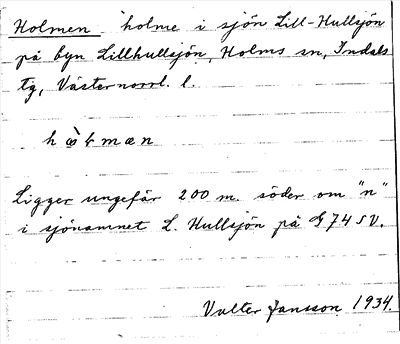 Holmen holme i sjön Lill-Hullsjön
på byn Lillhullsjön, Holms sn, Indals
tg, Västernorrl. l.
Ligger ungefär 200 m. söder om "n"
i sjönamnet L. Hullsjön på G 74 SV.
Valter Jansson 1934.